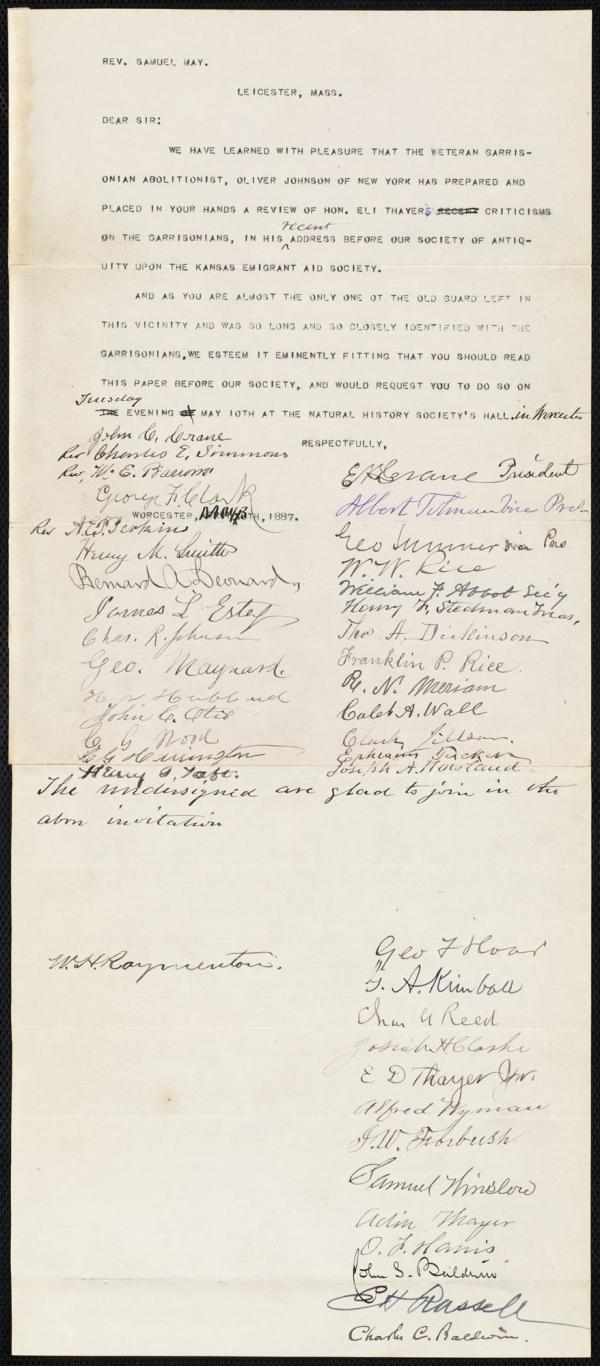 REV. SAMUEL MAY.
LEICESTER, MASS.
DEAR SIR:
WE HAVE LEARNED WITH PLEASURE THAT THE VETERAN GARRIS-
ONIAN ABOLITIONIST, OLIVER JOHNSON OF NEW YORK HAS PREPARED AND
PLACED IN YOUR HANDS A REVIEW OF HON. ELI THAYERS RECENT CRITICISMS
recent
ON THE GARRISONIANS, IN HIS ADDRESS BEFORE OUR SOCIETY OF ANTIQ-
UITY UPON THE KANSAS EMIGRANT AID SOCIETY.
AND AS YOU ARE ALMOST THE ONLY ONE OT THE OLD GUARD LEFT IN
THIS VICINITY AND WAS SO LONG AND SO CLOSELY IDENTIFIED WITH THE
GARRISONIANS, WE ESTEEM IT EMINENTLY FITTING THAT YOU SHOULD READ
THIS PAPER BEFORE OUR SOCIETY, AND WOULD REQUEST YOU TO DO SO ON
Tuesday
THE EVENING OF MAY 10TH AT THE NATURAL HISTORY SOCIETY'S HALL. in Worcester
RESPECTFULLY,
John C. Crane
Rev Charles E. Simmons
Rev, W. E.
George F. Clark
WORCESTER, TH, 1887.
Rev A. E. P. Perkins
Henry M. Smith
Bernard A. Leonard,
James L Estey
Chas. R. Johnson
Geo. Maynard.
Hubbard
John C. Otis
C G Wood
C G Harrington
Henry G. Taft.
E H Crane President
Albert Tolman Vice Pres
Geo Sumner vice Pres
W. W. Rice
William F. Abbot Sec'y
Henry F. Stedman Treas,
Thos A. Dickinson
Franklin P. Rice
R. N. Meriam
Caleb A. Wall
Clark Jillson.
Ephraim Tucker
Joseph A. Howland
The undersigned are glad to join in the
above invitation
W. H. Raymenton.
Geo F Hoar
A. Kimball
Chas G Reed
Josiah H Clarke
E D Thayer Jr.
Alfred Wyman
J. W. Forbush
Samuel Winslow
Adin Thayer
O. F. Harris
John S. Baldwin
E H Russell
Charles C. Baldwin.